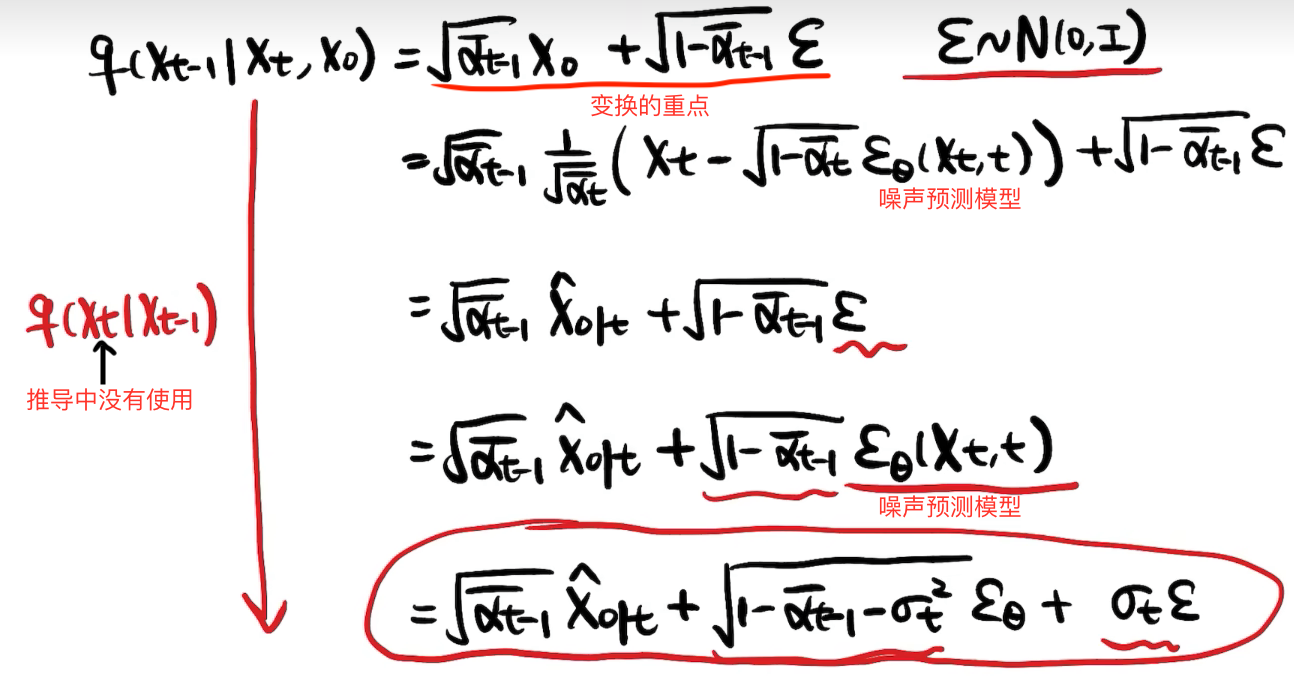 q(xt-1|xt, x0) = √ᾱt-1 x0 + √1-ᾱt-1 ε    ε~N(0,I)
变换的重点
= √ᾱt-1 1/√ᾱt (xt - √1-ᾱt εθ(xt,t)) + √1-ᾱt-1 ε
噪声预测模型
q(xt|xt-1)
↑
推导中没有使用
= √ᾱt-1 x̂0|t + √1-ᾱt-1 ε
= √ᾱt-1 x̂0|t + √1-ᾱt-1 εθ(xt,t)
噪声预测模型
= √ᾱt-1 x̂0|t + √1-ᾱt-1-σt² εθ + σt ε